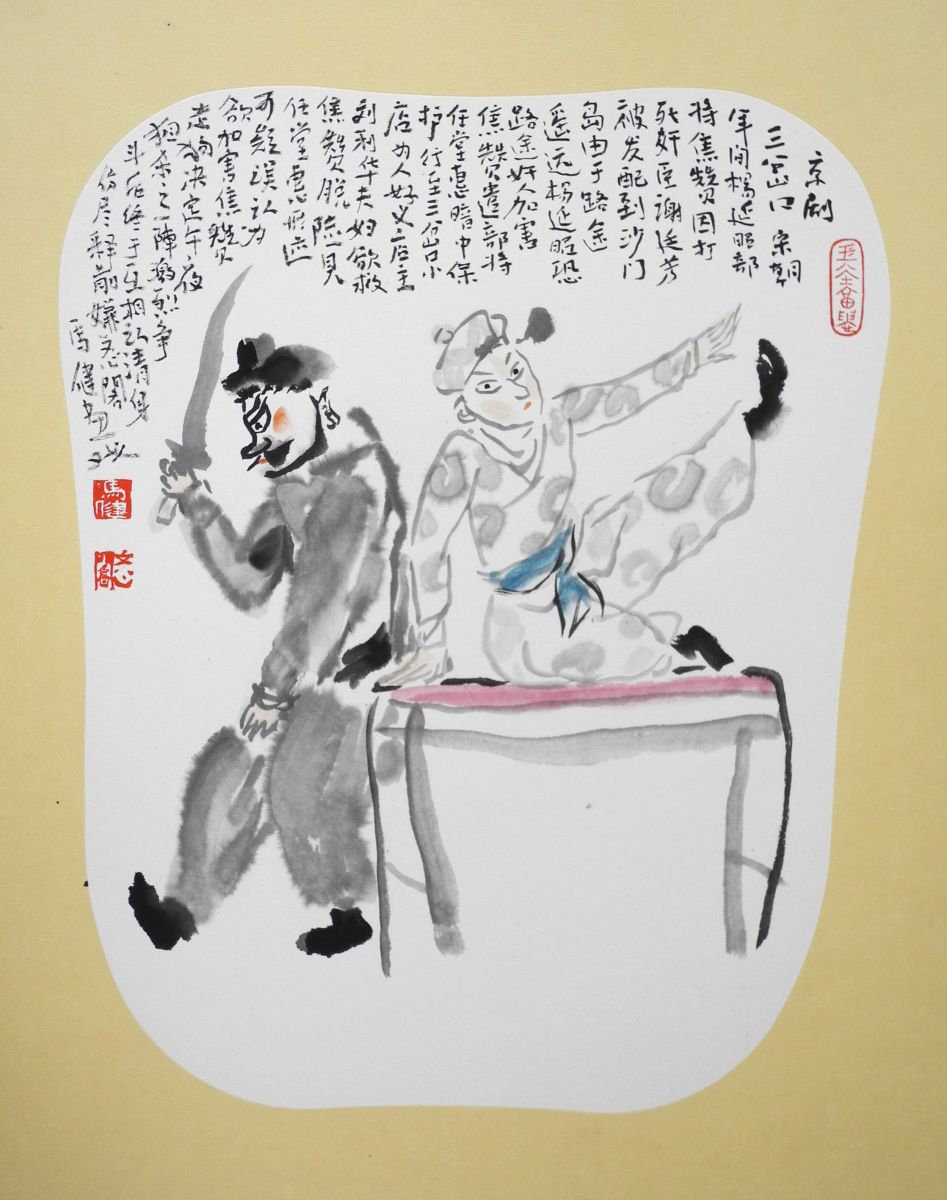 京剧
三岔口 宋朝
年间杨延昭部
将焦赞因打
死奸臣谢廷芳
被发配到沙门
岛由于路途
遥远杨延昭恐
路途奸人加害
焦赞遣部将
任堂惠暗中保
护行至三岔口小
店为人好义店主
刘利华夫妇欲救
焦赞脱险见
任堂惠形迹
可疑误认为
欲加害焦赞
决定午夜
狙杀之一阵激烈争
斗后终于互相认清身
份尽释前嫌
马健画
馬健